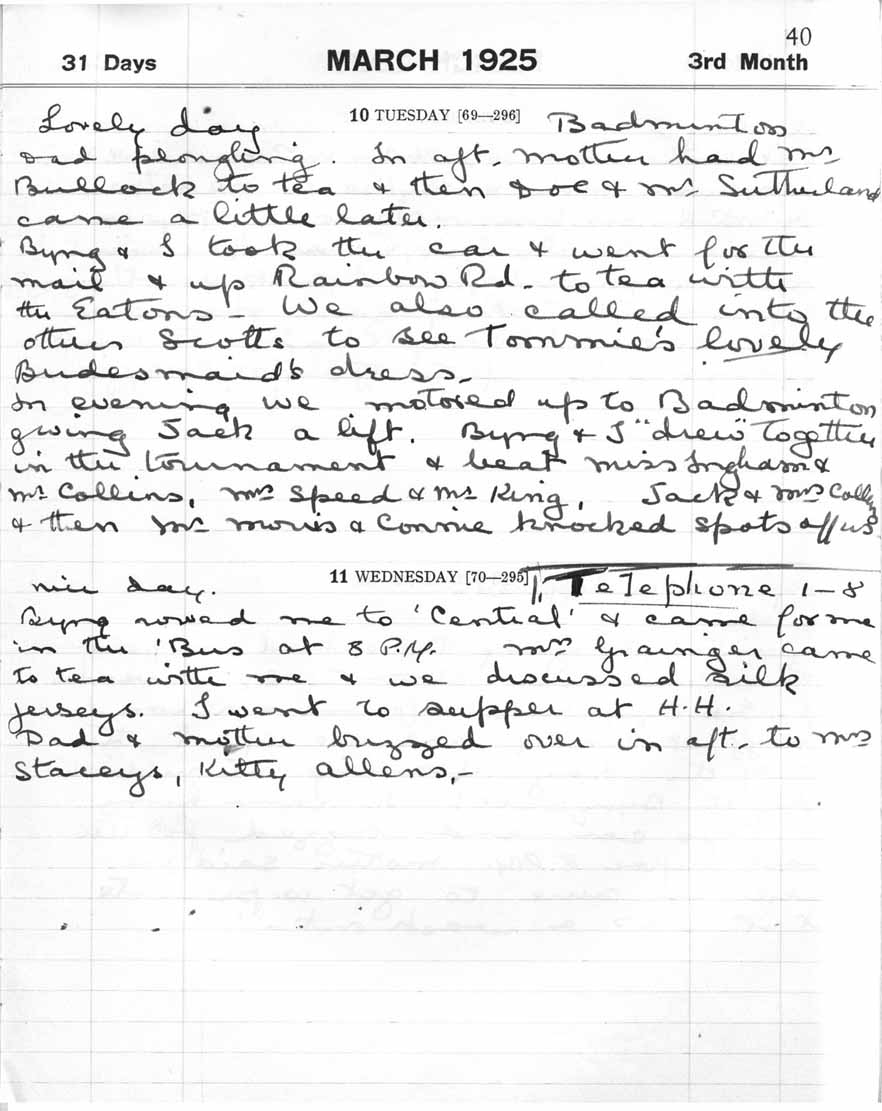 40
31 Days MARCH 1925 3rd Month
Lovely day 10 TUESDAY [69—296] Badminton
Dad ploughing. In aft. mother had Mr
Bullock to tea & then & Mr Sutherland
came a little later.
Byng & I took the car & went for the
mail & up Rainbow Rd. to tea with
the Eatons - We also called into the
other Scotts to see Tommie's lovely
Bridesmaid's dress.
In evening we motored up to Badminton
giving Jack a lift. Byng & I "drew" together
in the tournament & beat Miss Ingham &
Mr Collins, Mrs Speed & Mr King, Jack & Mrs Collins
& then Mr Morris & Connie knocked spots off us
nice day. 11 WEDNESDAY [70—295] Telephone 1-8
Byng rowed me to 'Central' & came for me
in the 'Bus at 8 P.M. Mrs Grainger came
to tea with me & we discussed silk
jerseys. I went to supper at H.H.
Dad & mother buzzed over in aft. to Mrs
Staceys, Kitty Allens,-